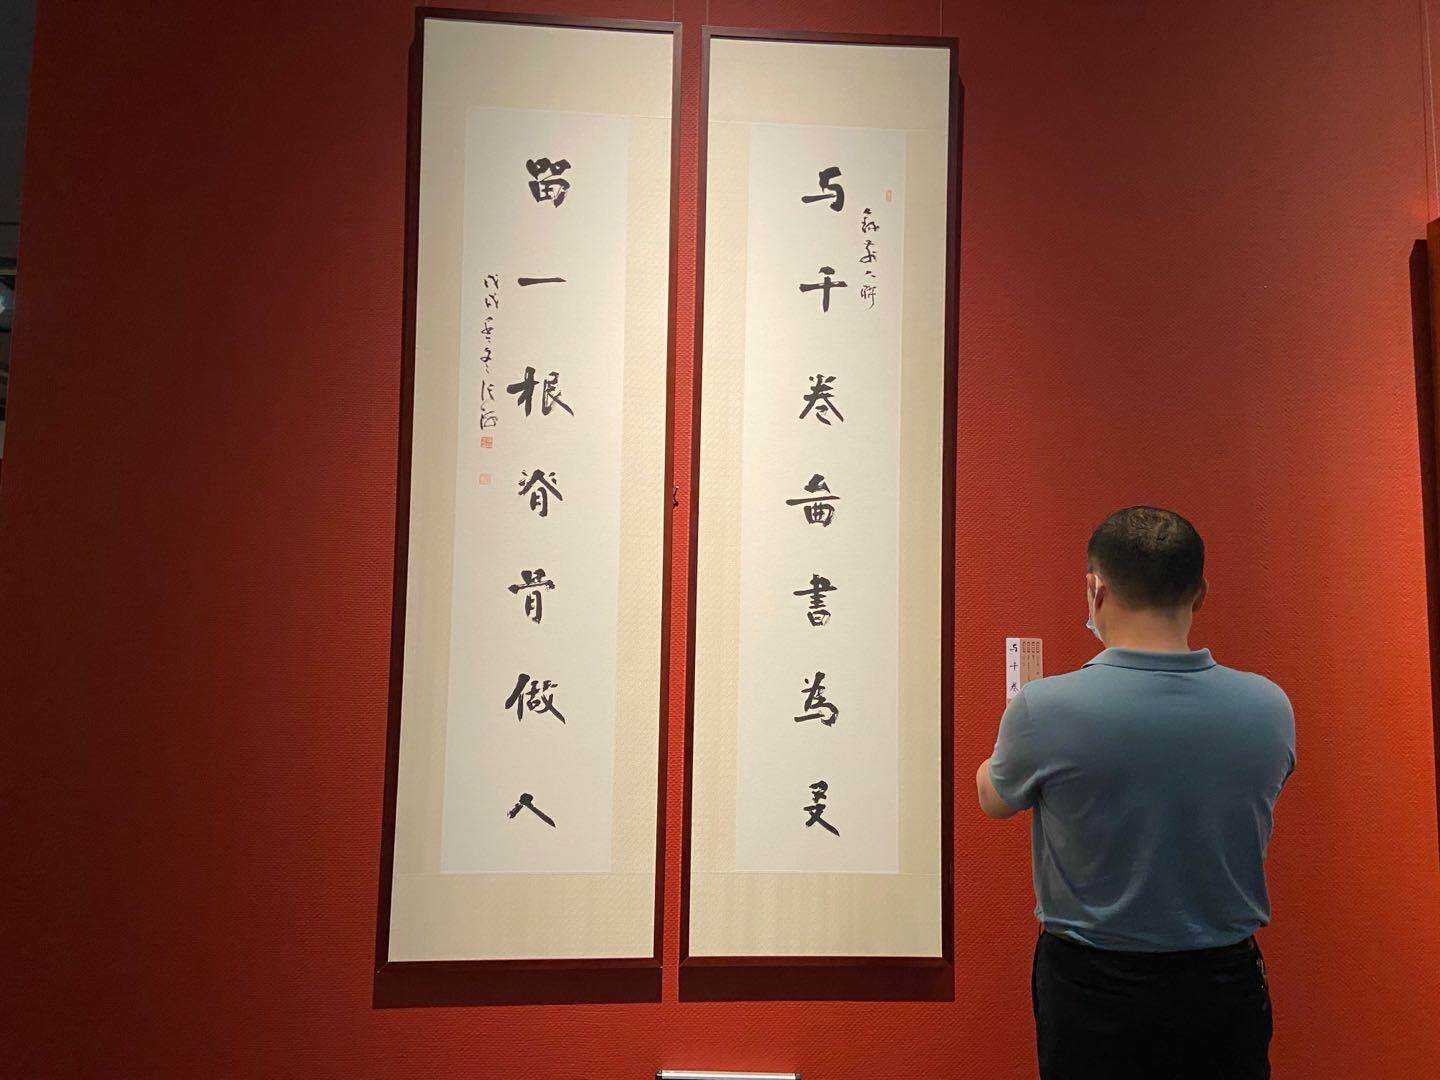 与千卷啚書為友
留一根脊骨做人
戊戌
与千卷